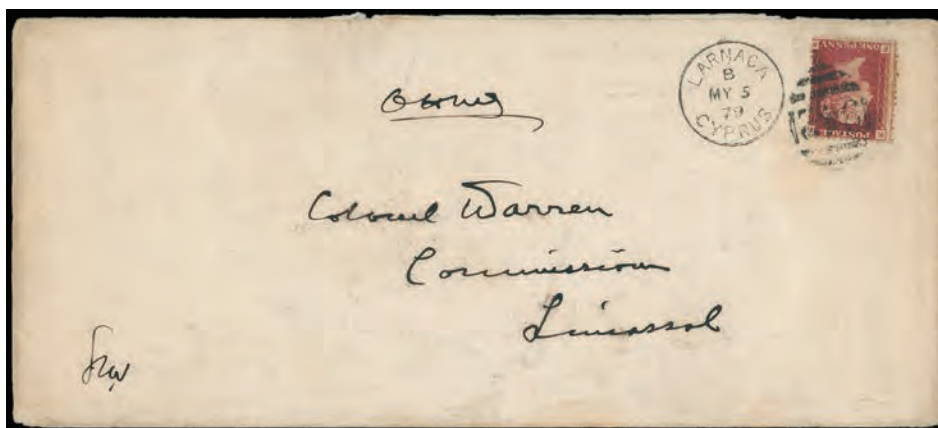 LARNACA
B
MY 5
79
CYPRUS
ONE PENNY
POSTAGE
Colonel Warren
Commission
Limassol